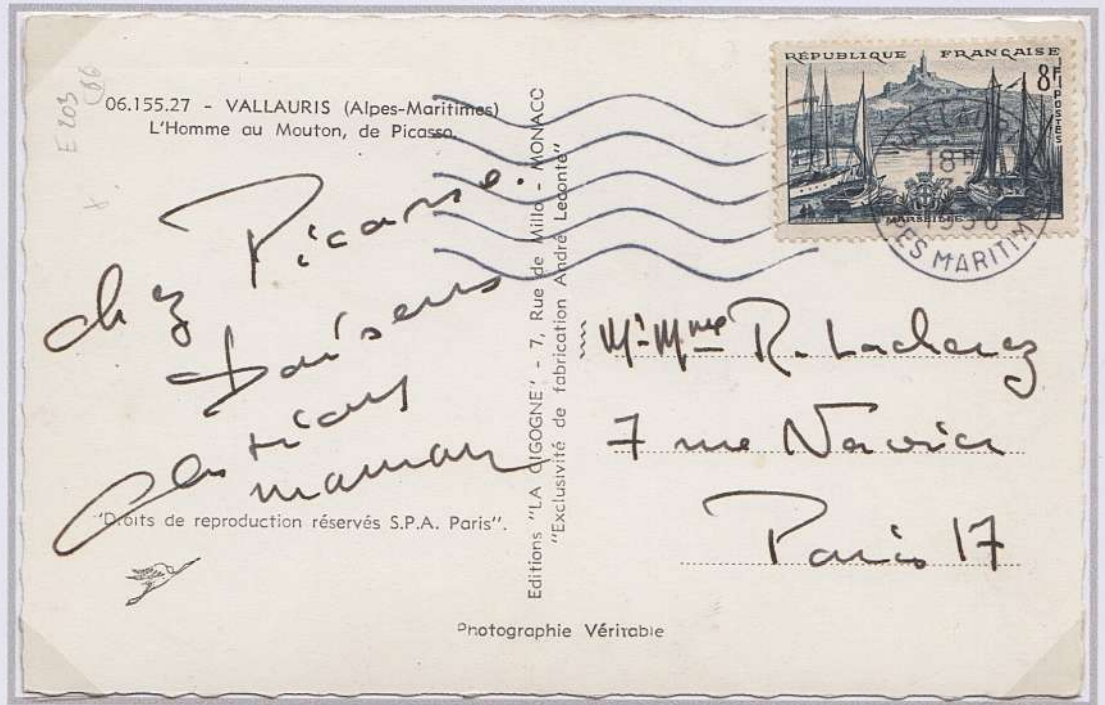 E 203
86
06.155.27 - VALLAURIS (Alpes-Maritimes)
L'Homme au Mouton, de Picasso.
chez Picasso.
Baisers
maman
"Droits de reproduction réservés S.P.A. Paris".
Editions "LA CIGOGNE" - 7, Rue de Millo - MONACO
"Exclusivité de fabrication André Leconte"
Photographie Véritable
RÉPUBLIQUE FRANÇAISE
8F
POSTES
MARSEILLE
VALLAURIS
18H
1956
PES MARITIM
Mr Mme R.
7 rue
Paris 17